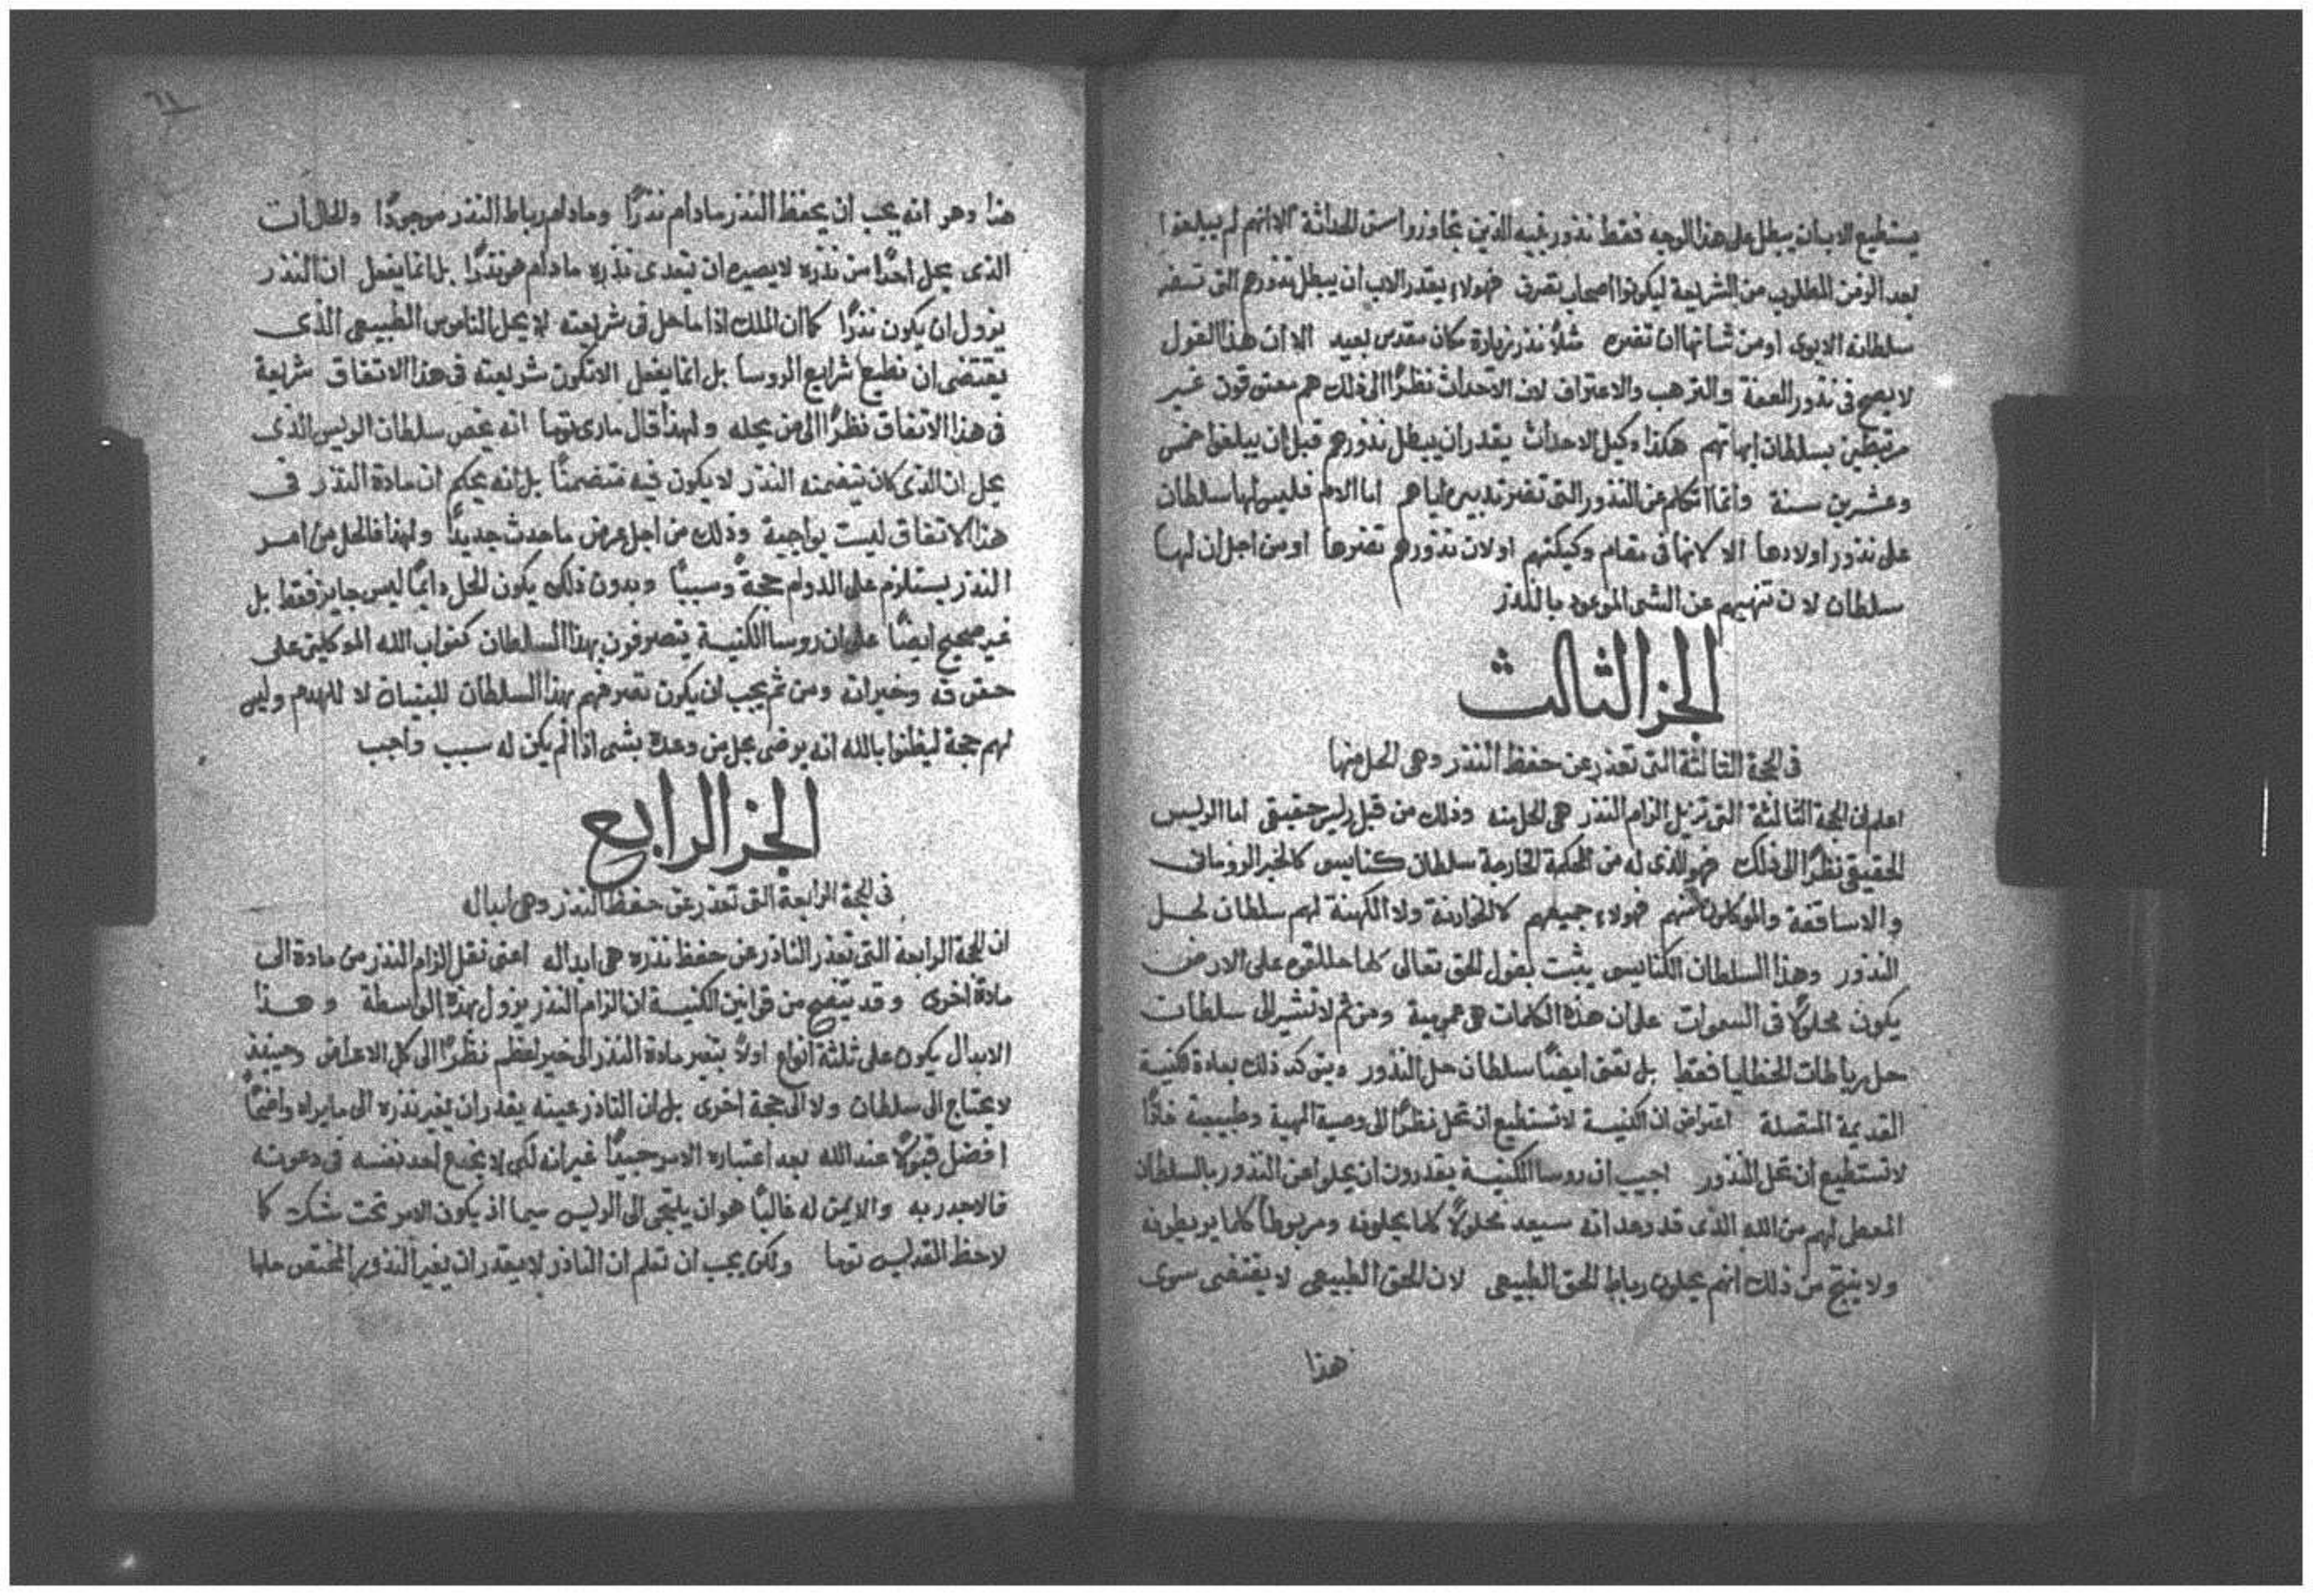 يستطيع الاب ان يبطل على هذا الوجه فقط نذور بنيه الذين تجاوزوا سن الحداثة الا انهم لم يبلغوا
بعد الزمن المطلوب من الشريعة ليكونوا اصحاب تصرف فهولاء يقدر الاب ان يبطل نذورهم التى تضر
سلطانه الابوى او من شانها ان تضره مثلاً نذر زيارة مكان مقدس بعيد الا ان هذا القول
لا يصح فى نذور العفة والترهب والاعتراف لان الاحداث نظرًا الى ذلك هم معتوقون غير
مرتبطين بسلطان ابهاتهم هكذا وكيل الاحداث يقدر ان يبطل نذورهم قبل ان يبلغوا خمس
وعشرين سنة وانما اتكلم عن النذور التى تضر تدبيره اياهم اما الام فليس لها سلطان
على نذور اولادها الا كانها فى مقام وكيلتهم او لان نذورهم تضرها او من اجل ان لها
سلطان لان تنهيهم عن الشى الموعود بالنذر
الجز الثالث
فى الحجة الثالثة التى تعذر عن حفظ النذر وهى الحل منها
اعلم ان الحجة الثالثة التى تزيل الزام النذر هى الحل منه وذلك من قبل رئيس حقيقى اما الريس
الحقيقى نظرًا الى ذلك فهو الذى له من المحكمة الخارجة سلطان كنايسى كالحبر الرومانى
والاساقفة والموكلون منهم فهولاء جميعهم لا الخوارنة ولا الكهنة لهم سلطان لحل
النذور وهذا السلطان الكنايسى يثبت بقول الحق تعالى كلما حللتموه على الارض
يكون محلولاً فى السموات على ان هذه الكلمات هى عمومية ومن ثم لا تشير الى سلطان
حل رباطات الخطايا فقط بل تعنى ايضًا سلطان حل النذور ويتوكد ذلك بعادة الكنيسة
القديمة المتصلة اعتراض ان الكنيسة لا تستطيع ان تحل نظرًا الى وصية الهية وطبيعية فاذًا
لا تستطيع ان تحل النذور اجيب ان روسا الكنيسة يقدرون ان يحلوا من النذور بالسلطان
المعطى لهم من الله الذى قد وعد انه سيعد محلولاً كلما يحلونه ومربوطاً كلما يربطونه
ولا ينتج من ذلك انهم يحلون رباط الحق الطبيعى لان الحق الطبيعى لا يقتضى سوى
هذا
هذا وهو انه يجب ان يحفظ النذر ما دام نذرًا وما دام رباط النذر موجودًا والحال ان
الذى يحل احدًا من نذره لا يصيره ان يتعدى نذره ما دام هو نذرًا بل انما يفعل ان النذر
يزول ان يكون نذرًا كما ان الملك اذا ما حل فى شريعته لا يحل الناموس الطبيعى الذى
يقتضى ان نطيع شرايع الروسا بل انما يفعل الا تكون شريعته فى هذا الاتفاق شريعة
فى هذا الاتفاق نظرًا الى من يحله ولهذا قال مارى توما انه يخص سلطان الريس الذى
يحل ان الذى كان يتضمنه النذر لا يكون فيه متضمنًا بل انه يحكم ان مادة النذر فى
هذا الاتفاق ليست بواجبة وذلك من اجل عرض ما حدث جديدًا ولهذا فالحل من امر
النذر يستلزم على الدوام حجةً وسببًا وبدون ذلك يكون الحل دايمًا ليس جايز فقط بل
غير صحيح ايضًا على ان روسا الكنيسة يتصرفون بهذا السلطان كنواب الله الموكلين على
حقوقه وخيراته ومن ثم يجب ان يكون تصرفهم بهذا السلطان للبنيان لا للهدم وليس
لهم حجة ليظنوا بالله انه يرضى بحل من وعده بشى اذا لم يكن له سبب واجب
الجز الرابع
فى الحجة الرابعة التى تعذر عن حفظ النذر وهى ابداله
ان الحجة الرابعة التى تعذر الناذر عن حفظ نذره هى ابداله اعنى نقل الزام النذر من مادة الى
مادة اخرى وقد يتضح من قوانين الكنيسة ان الزام النذر يزول بهذه الواسطة وهذا
الابدال يكون على ثلثة انواع اولاً بتغير مادة النذر الى خير اعظم نظرًا الى كل الاعراض وحينيذ
لا يحتاج الى سلطان ولا الى حجة اخرى بل ان الناذر عينه يقدر ان يغير نذره الى ما يراه واضحًا
افضل قبولاً عند الله بعد اعتباره الامر جيدًا غير انه لكى لا يخدع احد نفسه فى دعوته
فالاجدر به والايمن له غالبًا هو ان يلتجى الى الريس سيما اذ يكون الامر تحت شك كما
لاحظ القديس توما ولكن يجب ان تعلم ان الناذر لا يقدر ان يغير النذور المختص حلها